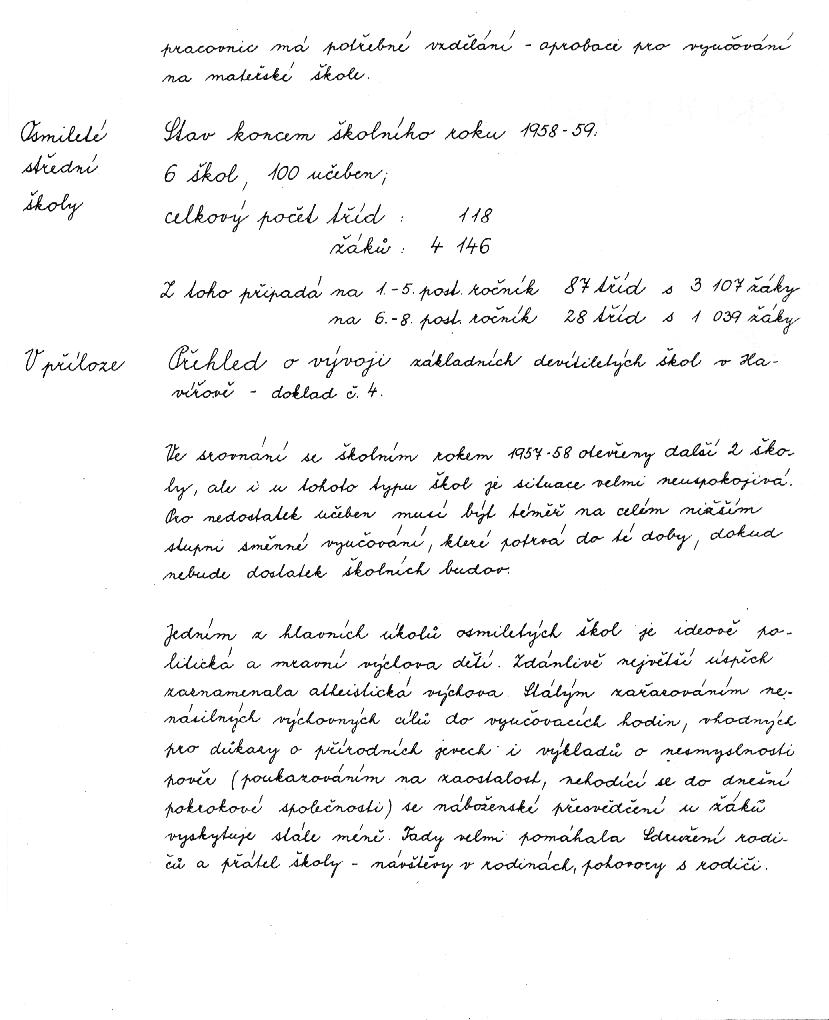 pracovnic má potřebné vzdělání - aprobaci pro vyučování
na mateřské škole.
Osmileté
střední
školy
Stav koncem školního roku 1958-59.
6 škol, 100 učeben;
celkový počet tříd : 118
žáků : 4 146
Z toho připadá na 1.-5. post. ročník 87 tříd s 3 107 žáky
na 6.-8. post. ročník 28 tříd s 1 039 žáky
V příloze
Přehled o vývoji základních devítiletých škol v Ha-
vířově - doklad č. 4.
Ve srovnání se školním rokem 1957-58 otevřeny další 2 ško-
ly, ale i u tohoto typu škol je situace velmi neuspokojivá.
Pro nedostatek učeben musí být téměř na celém nižším
stupni směnné vyučování, které potrvá do té doby, dokud
nebude dostatek školních budov.
Jedním z hlavních úkolů osmiletých škol je ideově po-
litická a mravní výchova dětí. Zdánlivě největší úspěch
zaznamenala atheistická výchova. Stálým zařazováním ne-
násilných výchovných cílů do vyučovacích hodin, vhodných
pro důkazy o přírodních jevech i výkladů o nesmyslnosti
pověr (poukazováním na zaostalost, nehodící se do dnešní
pokrokové společnosti) se náboženské přesvědčení u žáků
vyskytuje stále méně. Tady velmi pomáhala Sdružení rodi-
čů a přátel školy - návštěvy v rodinách, pohovory s rodiči.